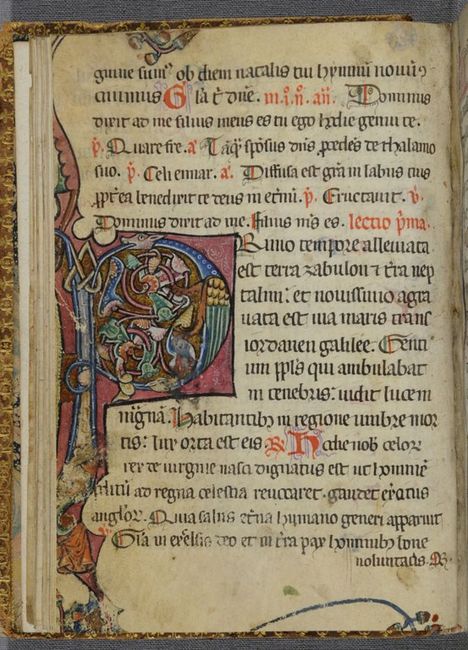 guine sumꝰ ob diem natalis tui hymnum nouū ↄ
cinimus Gl̃a t̃ dñe. in .i. ñ. añ. Dominus
dixit ad me filius meus es tu ego hodie genui te.
p̃. Quare fre. a᷑ Tāq̃ sponsus dñs procedēs de thalamo
suo. p̃. Celi enarr. a᷑. Diffusa est gr̃a in labiis tuis
propt̃ea benedixit te deus in et̃nū. p̃. Eructauit. ṽ.
Dominus dixit ad me. Filius m̃s es. lectio p̃ma.
Primo tempore alleuiata
est terra zabulon ⁊ t̃ra nep
talim: et nouissimo agra
uata est uia maris trans
iordanen galilee. Genti
um pp̃ls qui ambulabat
in tenebris: uidit lucem
magnā. Habitantibꝫ in regione umbre mor
tis: lux orta est eis R̃ Hodie nob celoꝝ
rex de uirgine nasci dignatus est ut hominē
p̃ditū ad regna celestia reuocaret. gaudet ex̃citus
angl̃oꝝ. Quia salus et̃na humano generi apparuit
Gl̃ia in excelsis deo et in t̃ra pax hominibꝫ bone
uoluntatis.